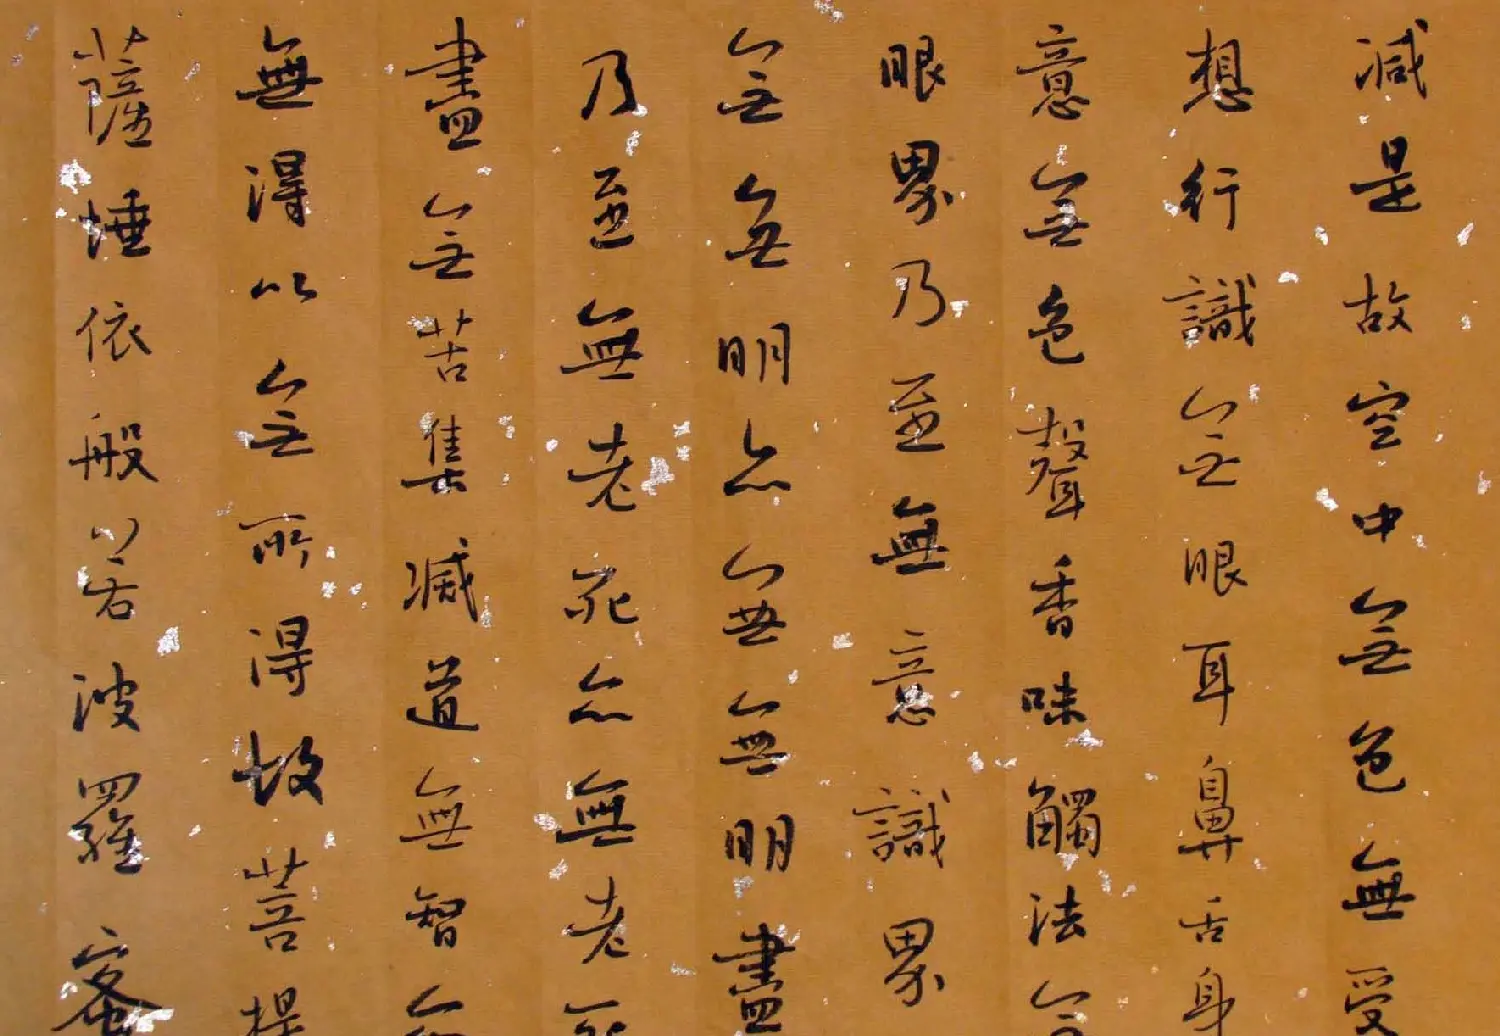 減是故空中無色無受
想行識無眼耳鼻舌身
意無色聲香味觸法無
眼界乃至無意識界
無無明亦無無明盡
乃至無老死亦無老死
盡無苦集滅道無智無
無得以無所得故菩提
薩埵依般若波羅蜜